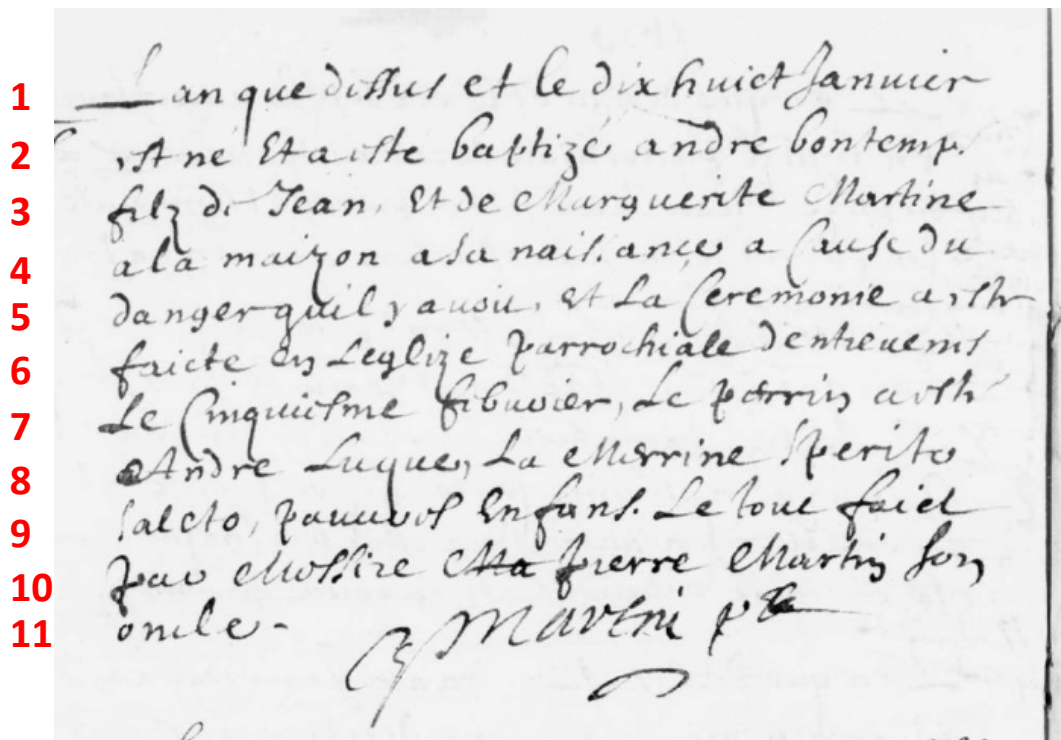 1 Lan que dessus et le dix huict Janvier
2 est ne Et a este baptizé andre bontemp.
3 filz de Jean, Et de Marguerite Martine
4 a la maizon a sa naissance a Cause du
5 danger quil y avoit, et La Ceremonie a este
6 faicte en Leglize parrochiale dentrevenes
7 Le Cinquiesme febvrier, Le perrin a esté
8 Andre Luque, La Merrine Sperito
9 pauvres Enfans. Le tout faict
10 par Messire Ma pierre Martin son
11 oncle.
Martin ptre